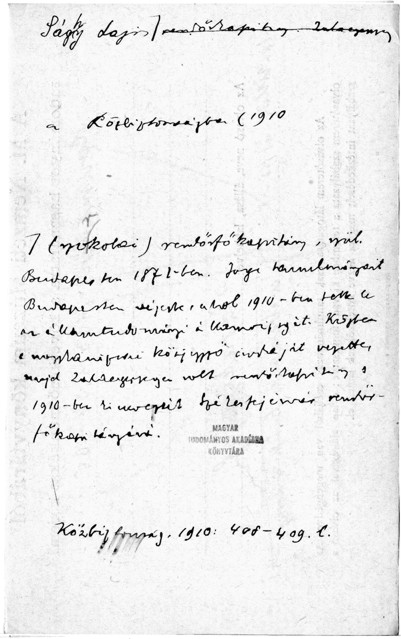 Sághy Lajos / rendőrkapitány. Zalaegerszeg
a Közbiztonságban (1910
] ( ) rendőrfőkapitány, szül.
Budapesten 187 -ben. Jogi tanulmányait
Budapesten végezte, ahol 1910-ben tette le
az államtudományi államvizsgát. Közben
a közjegyző irodáját vezette,
majd Zalaegerszegen volt rendőrkapitány s
1910-ben kinevezték Székesfejérvár rendőr-
főkapitányává.
MAGYAR
TUDOMÁNYOS AKADÉMIA
KÖNYVTÁRA
Közbiztonság. 1910: 408-409. l.